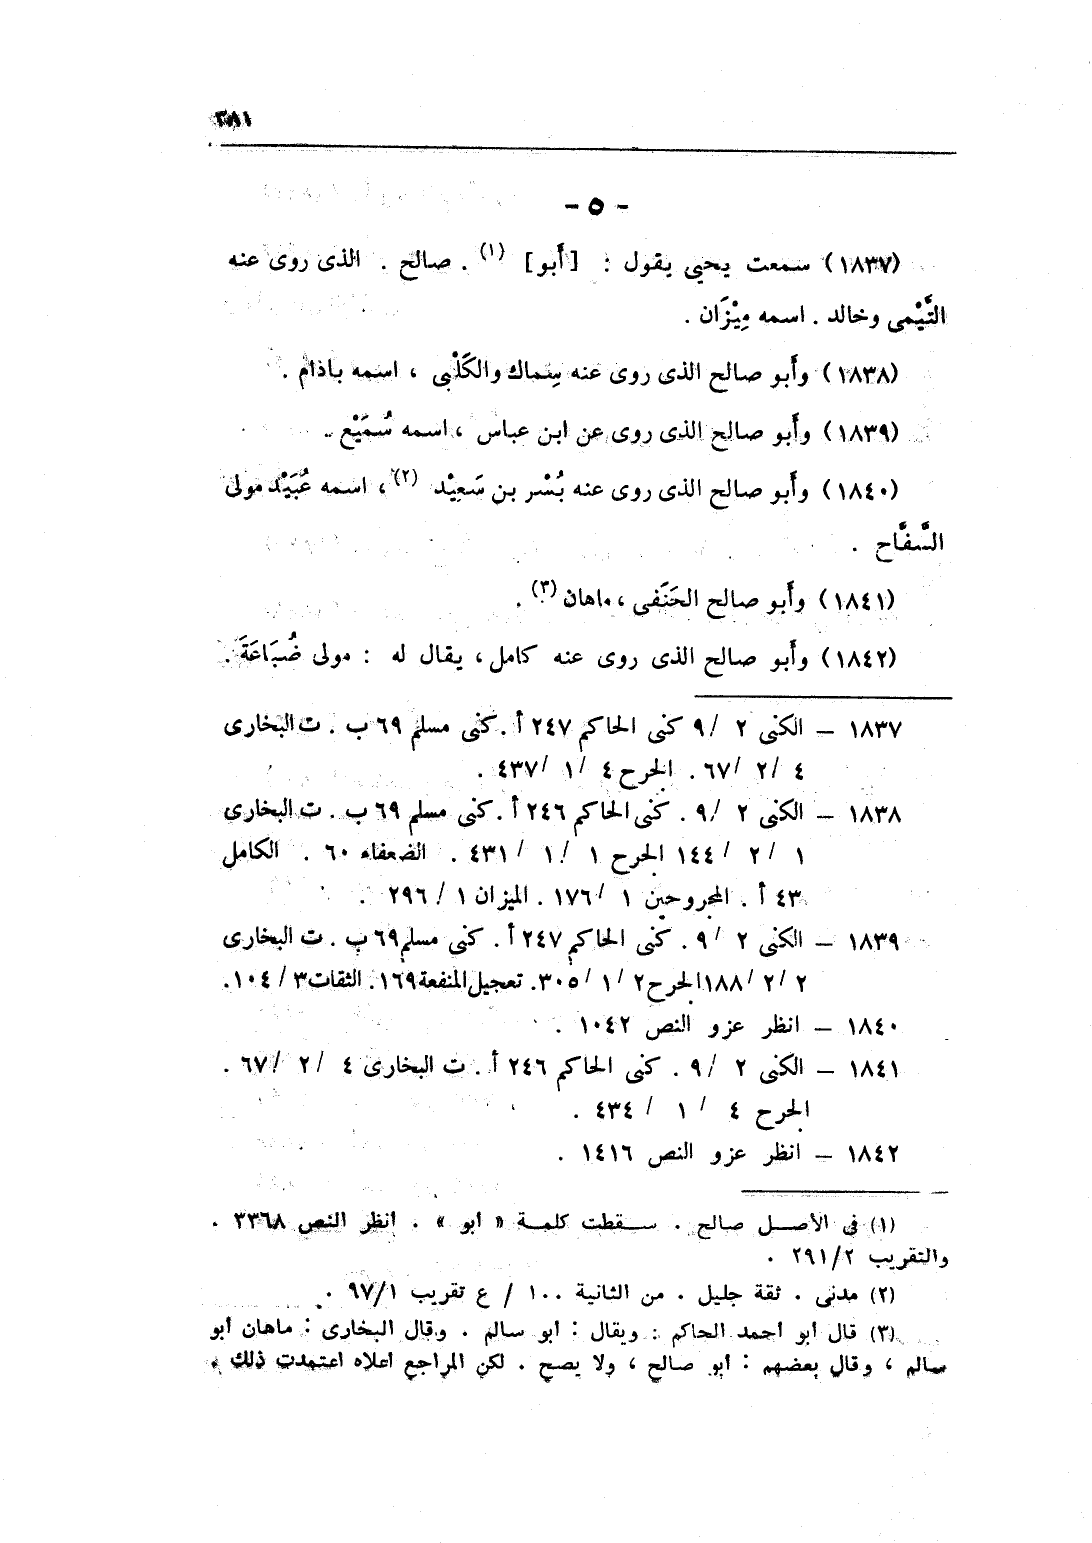 ٣٨١
- ٥ -
(١٨٣٧) سمعت يحيي يقول : [أَبو] (١) . صالح . الذى روى عنه
التَّيْمى وخالد . اسمه مِيْزَان .
(١٨٣٨) وأَبو صالح الذى روى عنه سِماك والكَلْبى ، اسمه باذام .
(١٨٣٩) وأَبو صالح الذى روى عن ابن عباس ، اسمه سُمَيْع .
(١٨٤٠) وأَبو صالح الذى روى عنه بُسْر بن سَعِيْد (٢) ، اسمه عُبَيْد مولى
السَّفَّاح .
(١٨٤١) وأَبو صالح الحَنَفى ، ماهان (٣) .
(١٨٤٢) وأَبو صالح الذى روى عنه كامل ، يقال له : مولى ضُبَاعَةَ .
١٨٣٧ – الكنى ٢ /٩ كنى الحاكم ٢٤٧ أ . كنى مسلم ٦٩ ب . ت البخارى
٤ /٢ /٦٧ . الجرح ٤ /١ /٤٣٧ .
١٨٣٨ – الكنى ٢ /٩ . كنى الحاكم ٢٤٦ أ . كنى مسلم ٦٩ ب . ت البخارى
١ /٢ /١٤٤ الجرح ١ /١ /٤٣١ . الضعفاء ٦٠ . الكامل
٤٣ أ . المجروحين ١ /١٧٦ . الميزان ١ /٢٩٦ .
١٨٣٩ – الكنى ٢ /٩ . كنى الحاكم ٢٤٧ أ . كنى مسلم ٦٩ ب . ت البخارى
٢ /٢ /١٨٨ الجرح ٢ /١ /٣٠٥ . تعجيل المنفعة ١٦٩ . الثقات ٣ /١٠٤ .
١٨٤٠ – انظر عزو النص ١٠٤٢ .
١٨٤١ – الكنى ٢ /٩ . كنى الحاكم ٢٤٦ أ . ت البخارى ٤ /٢ /٦٧ .
الجرح ٤ /١ /٤٣٤ .
١٨٤٢ – انظر عزو النص ١٤١٦ .
(١) فى الأصل صالح . سقطت كلمة « أبو » . أنظر النص ٣٣٦٨ .
والتقريب ٢٩١/٢ .
(٢) مدنى . ثقة جليل . من الثانية ١٠٠ / ع تقريب ٩٧/١ .
(٣) قال أبو أحمد الحاكم : ويقال : أبو سالم . وقال البخارى : ماهان أبو
سالم ، وقال بعضهم : أبو صالح ، ولا يصح . لكن المراجع أعلاه اعتمدت ذلك .